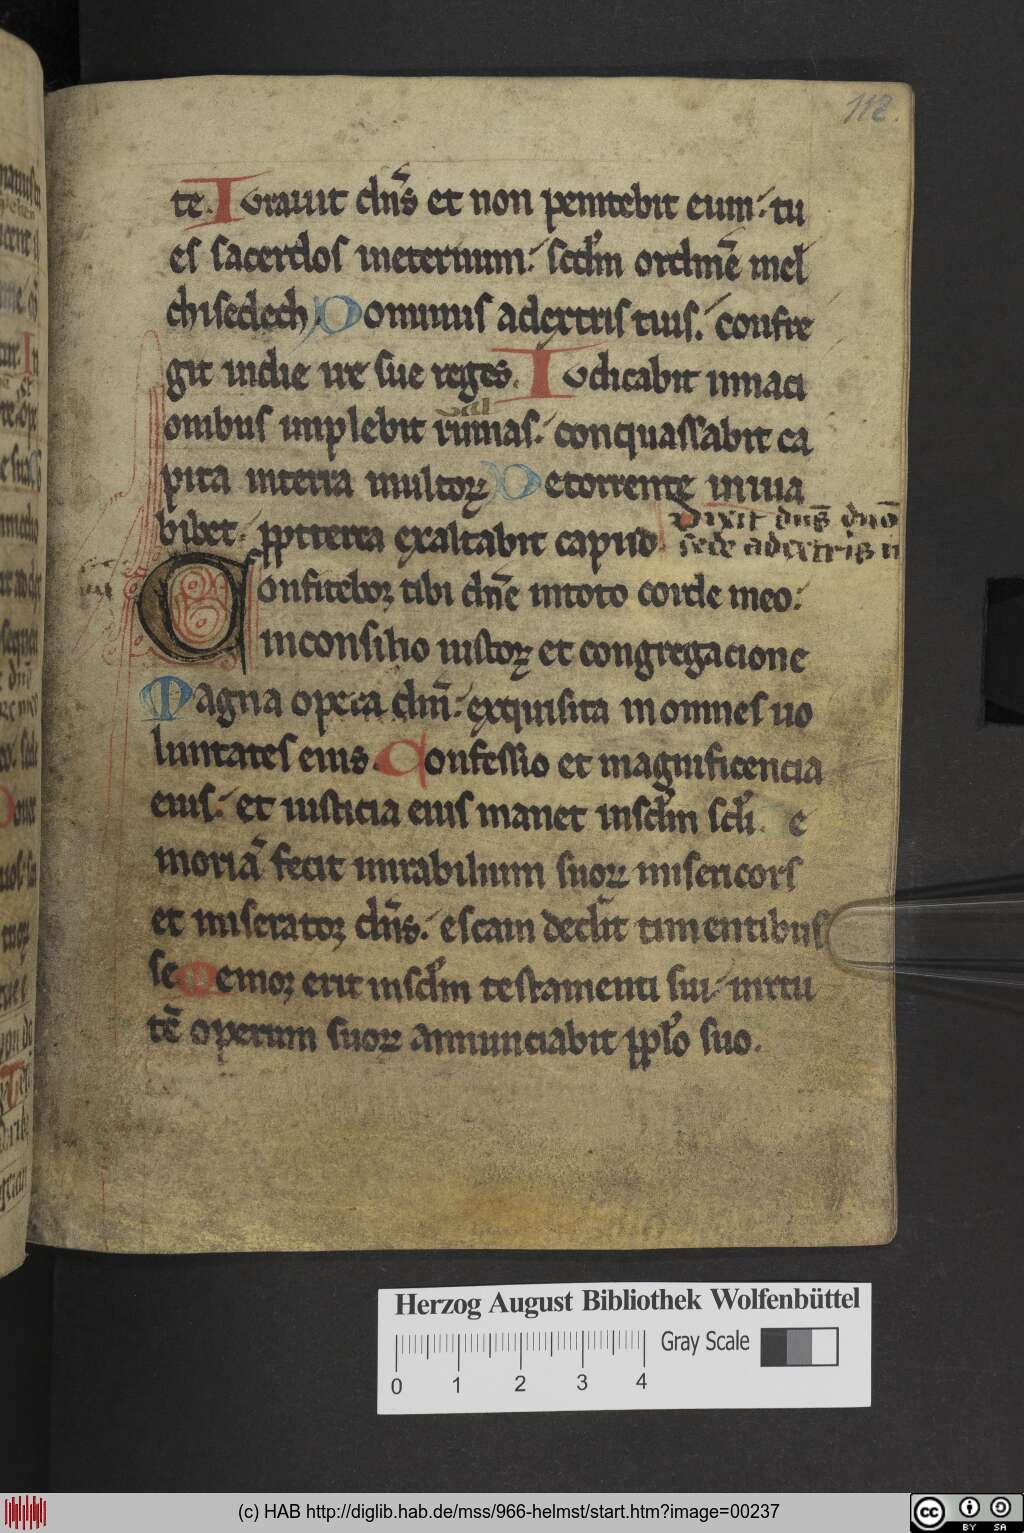 112.
te. Iurauit dn̄s et non penitebit eum. tu
es sacerdos ineternum. scd̄m ordinē mel
chisedech Dominus adextris tuis. confre
git indie ire sue reges. Iudicabit innaci
onibus implebit ruinas. conquassabit ca
pita interra multoꝝ Detorrente inuia
bibet. ꝓpterea exaltabit capud
Dixit dn̄s dn̄o
sede adextris
Confiteboꝛ tibi dn̄e intoto corde meo.
inconsilio iustoꝝ et congregacione
Magna opera dn̄i. exquisita inomnes uo
luntates eius. Confessio et magnificencia
eius. et iusticia eius manet insclm̄ scl̄i. e
moriā fecit mirabilium suoꝝ misericors
et miseratoꝛ dn̄s. escam dedit timentibus
se Memoꝛ erit inscl̄m testamenti sui. uirtu
tē operum suoꝝ annunciabit ppl̄o suo.
Herzog August Bibliothek Wolfenbüttel
Gray Scale
0 1 2 3 4
(c) HAB http://diglib.hab.de/mss/966-helmst/start.htm?image=00237
cc BY SA